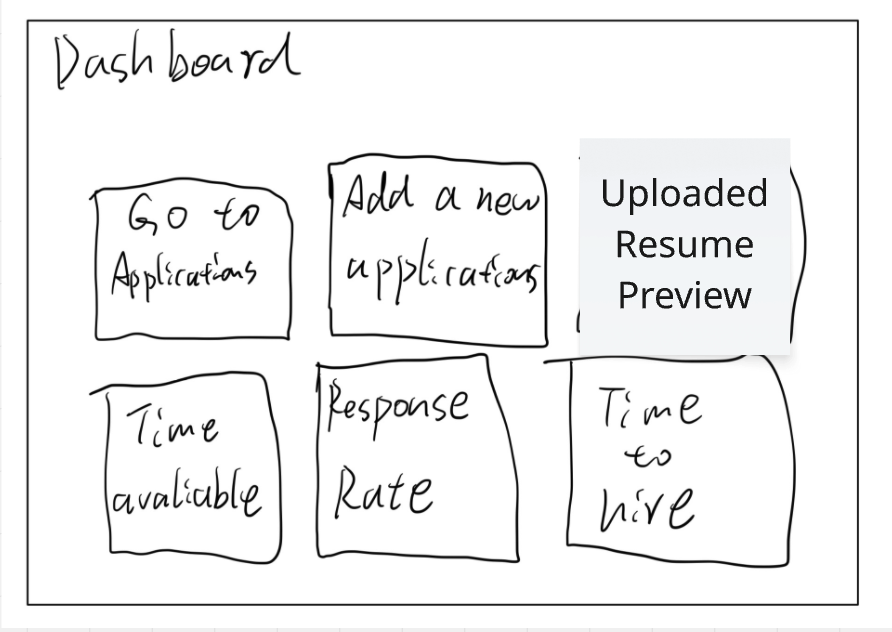 Dashboard
Go to
Applications
Add a new
applications
Uploaded
Resume
Preview
Time
avaliable
Response
Rate
Time
to
hire